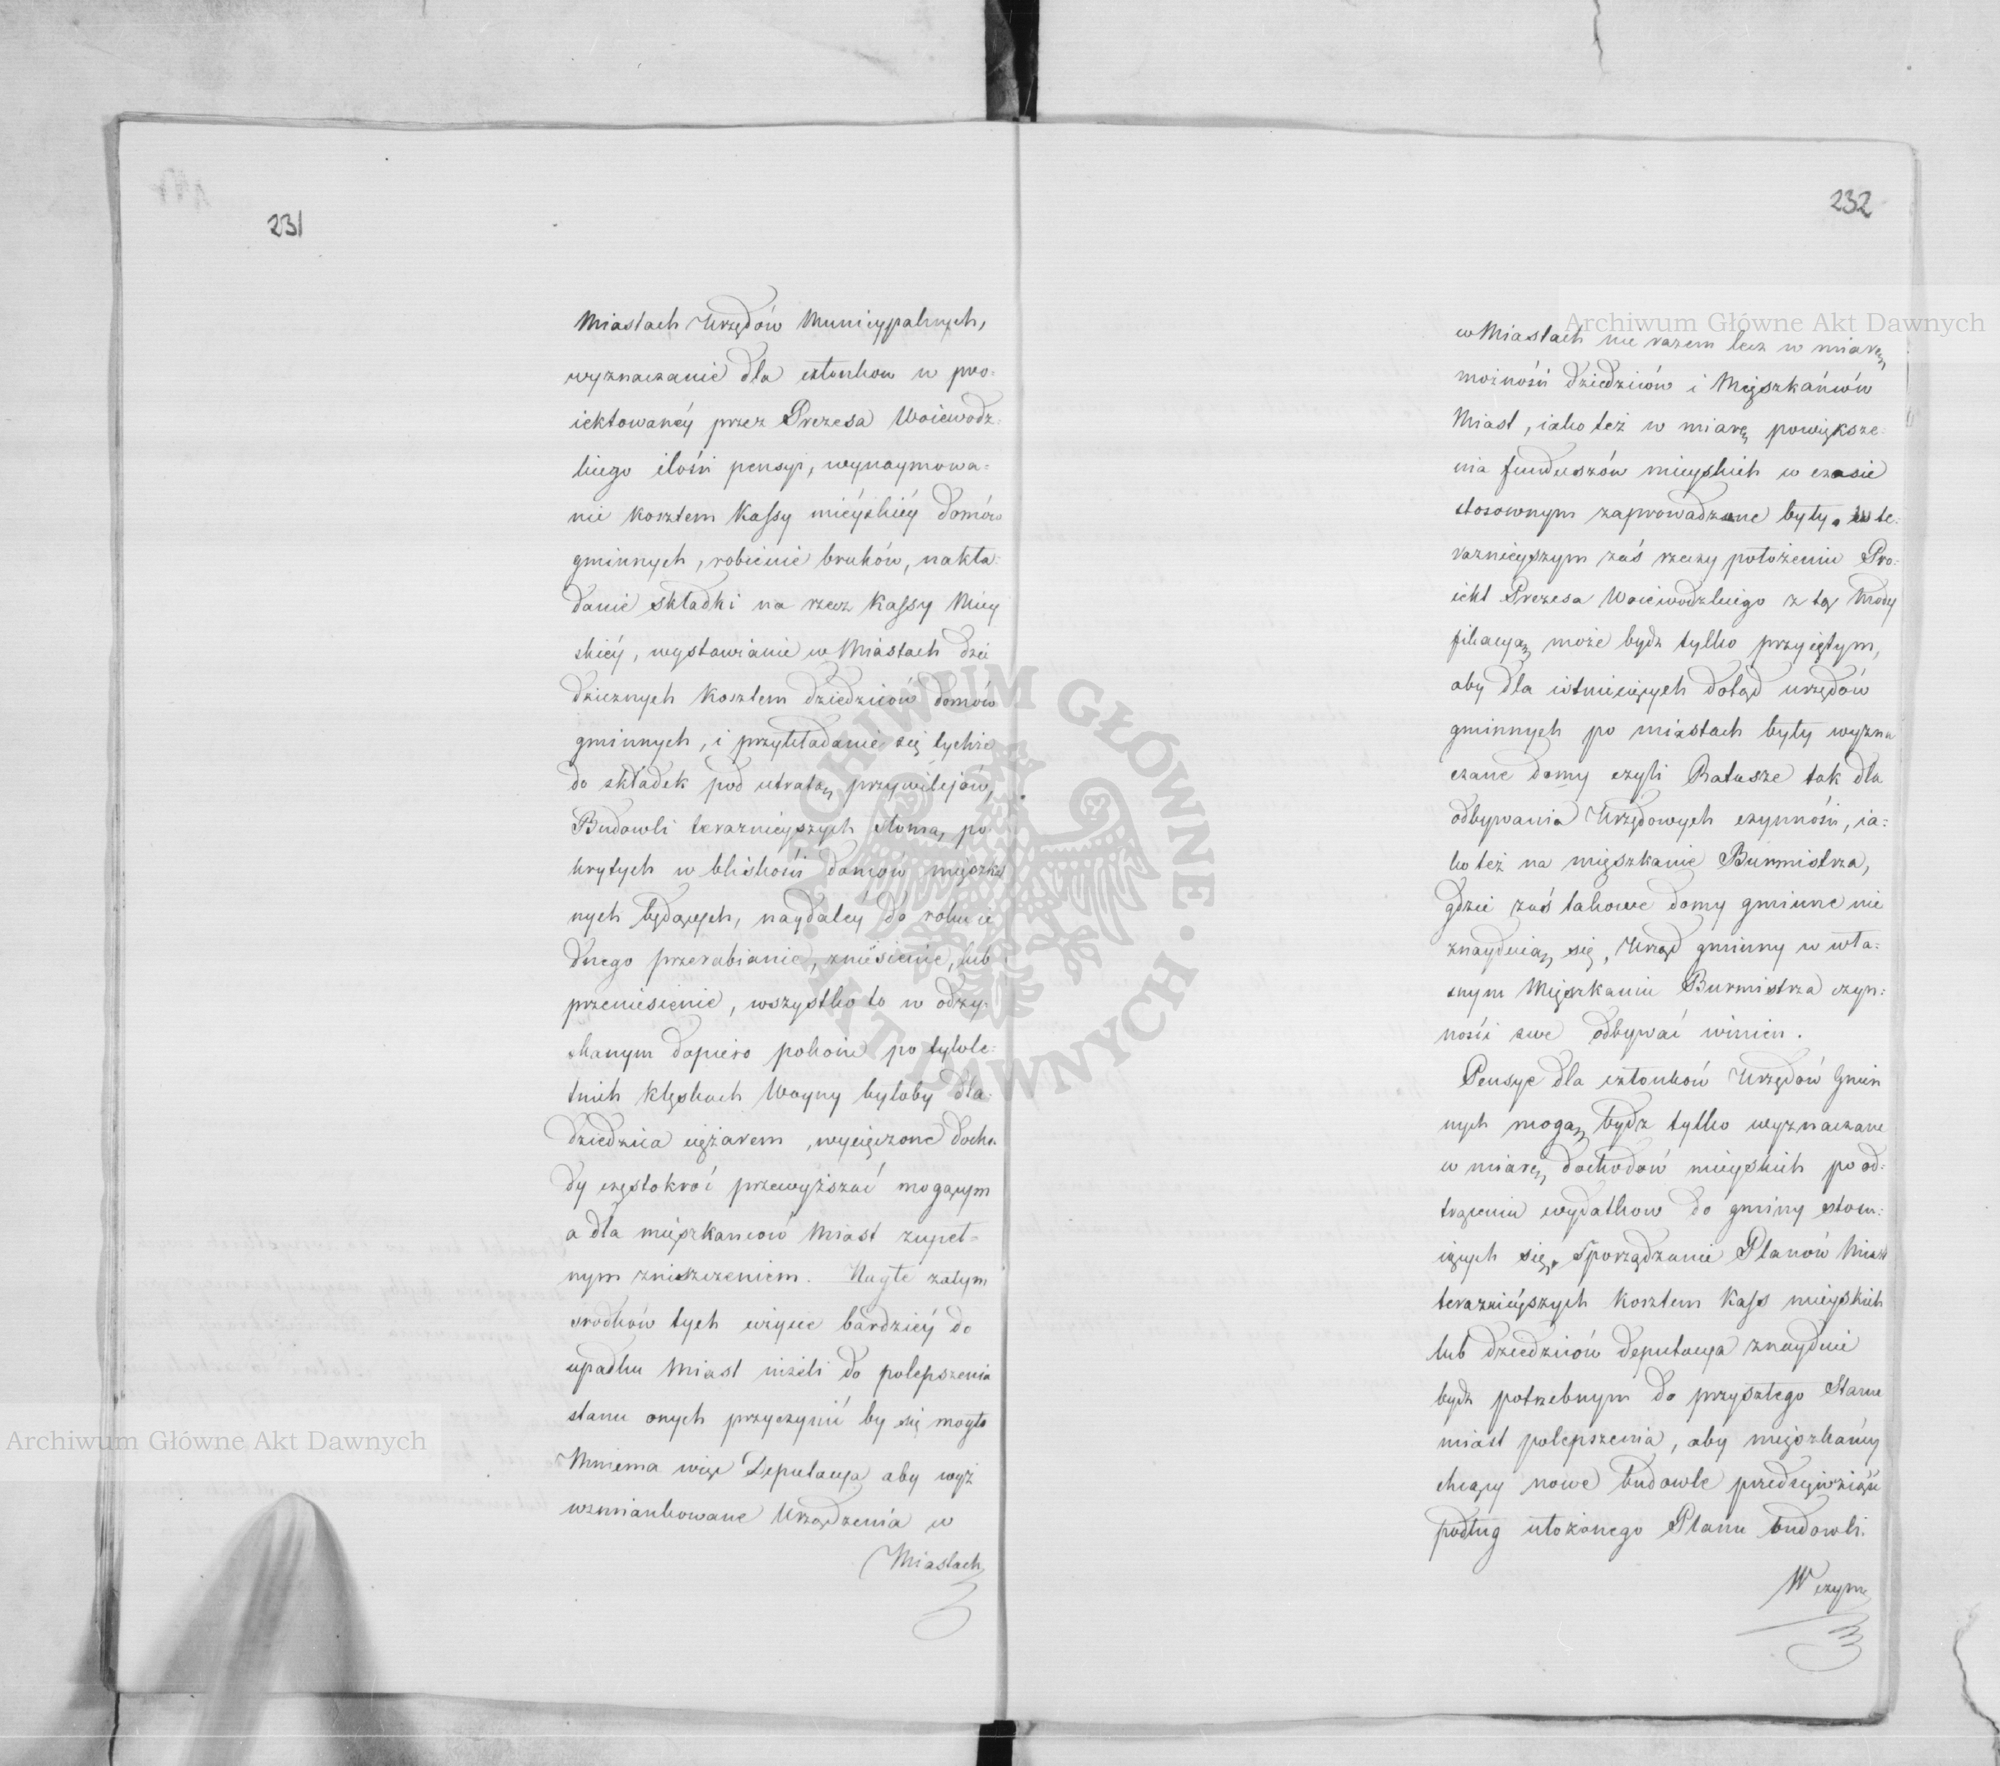 231
Miastach Urzędów Municypalnych,
wyznaczanie dla członkow w pro-
iektowaney przez Prezesa Woiewodz-
kiego ilości pensyi, wynaymowa-
nie kosztem Kassy mieyskiey domów
gminnych, robienie bruków, nakła-
danie składki na rzecz Kassy Miey
skiey, wystawianie w Miastach dzie
dzicznych kosztem dziedziców domów
gminnych, i przykładanie się tychże
do składek pod utratą przywilejów,
Budowli teraznieyszych słomą po
krytych w bliskości domów mięszkal
nych będących, naydaley do roku ie
dnego przerabianie, zniesienie, lub
przeniesienie, wszystko to w odzy-
skanym dopiero pokoiu po tylole-
tnich klęskach Woyny byłoby dla
dziedzica ciężarem, wycięczone docho
dy częstokroć przewyższać mogącym
a dla mięszkancow Miast zupeł-
nym zniszczeniem. Nagłe zatym
srodków tych użycie bardziey do
upadku Miast niżeli do polepszenia
stanu onych przyczynić by się mogło
Mniema więc Deputacya aby wyż
wzmiankowane Urządzenia w
Miastach
232
w Miastach nie razem lecz w miarę
możności dziedziców i Mięszkańców
Miast, iako też w miarę powiększe-
nia funduszów mieyskich w czasie
stosownym zaprowadzone były. w te-
raznieyszym zaś rzeczy położeniu Pro-
iekt Prezesa Woiewodzkiego z tą Mody
fikacyą może bydz tylko przyiętym,
aby dla istnieiących dotąd urzędów
gminnych po miastach były wyzna
czane domy czyli Ratusze tak dla
odbywania Urzędowych czynności, ia-
ko też na mięszkanie Burmistrza,
gdzie zaś takowe domy gminne nie
znayduią się, Urząd gminny w wła-
snym Mięszkaniu Burmistrza czyn-
ności swe odbywać winien.
Pensye dla członków Urzędów Gmin
nych mogą bydz tylko wyznaczane
w miarę dochodów mieyskich po od-
trąceniu wydatkow do gminy stosu-
iących się. Sporządzanie Planów Miast
teraznieyszych kosztem Kass mieyskich
lub dziedziców Deputacya znayduie
bydz potrzebnym do przyszłego Stanu
miast polepszenia, aby mięszkańcy
chcący nowe budowle przedsięwziąść
podług ułożonego Planu budowli.
W czym
Archiwum Główne Akt Dawnych
Archiwum Główne Akt Dawnych
ARCHIWUM GŁÓWNE · AKT DAWNYCH ·